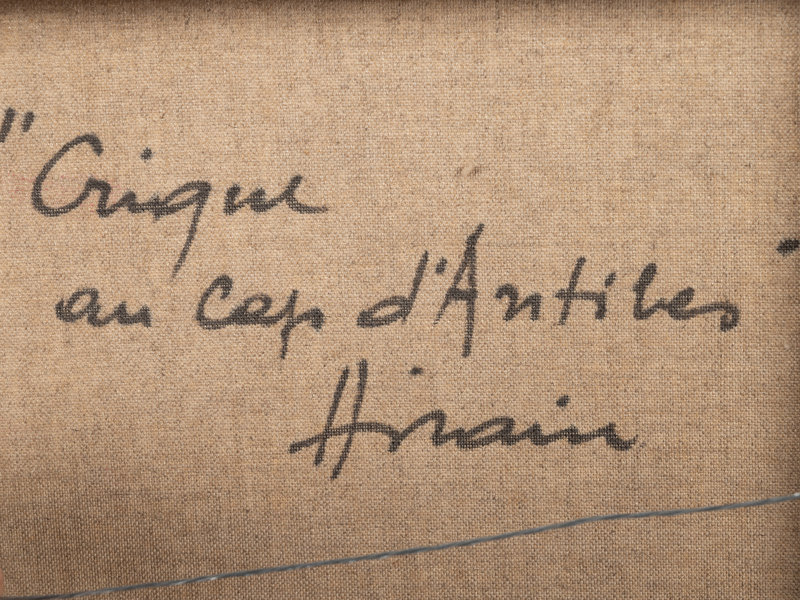 "Crique
au cap d'Antibes"
Hirain